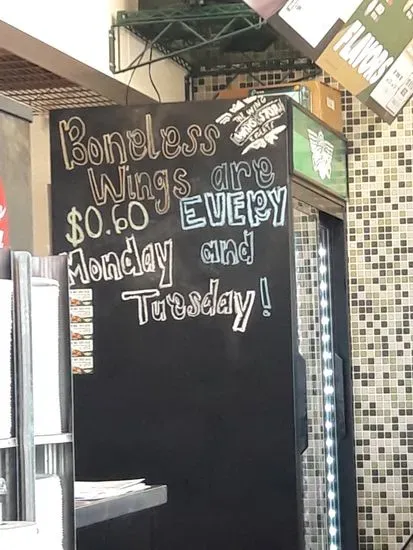 FLAVORS
Boneless
Wings are
$0.60 EVERY
Monday and
Tuesday!